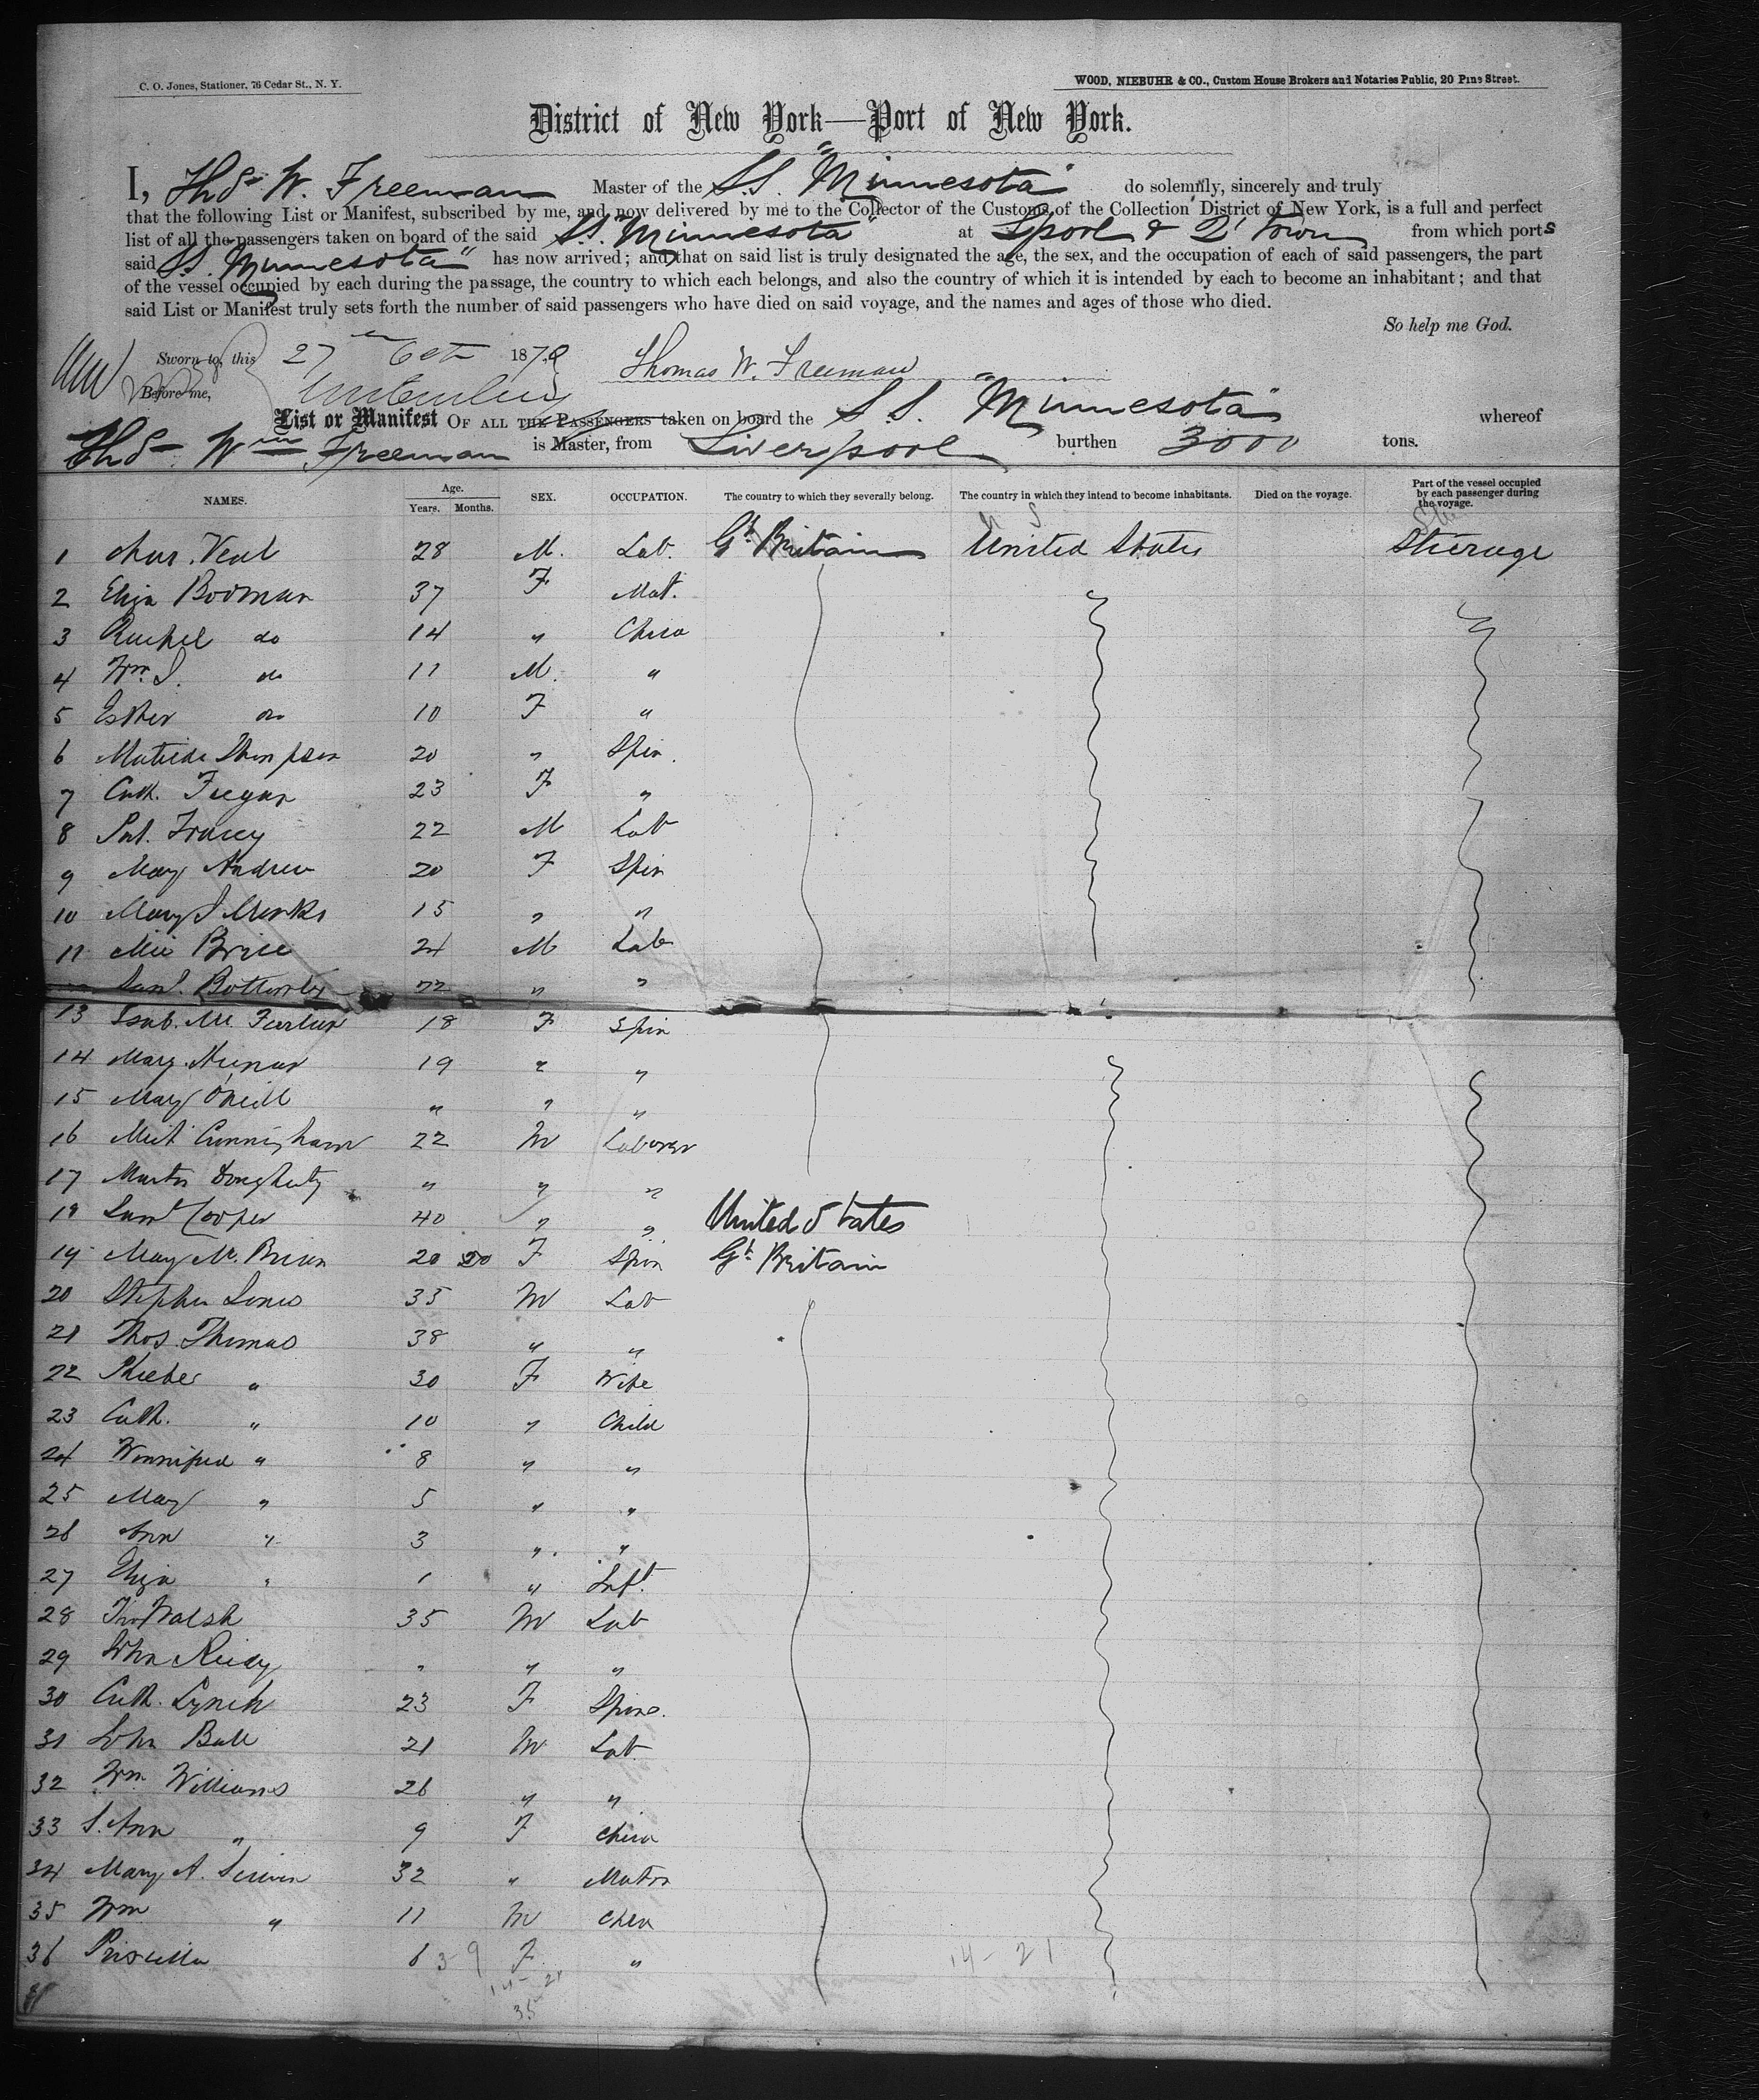 C. O. Jones, Stationer, 76 Cedar St., N. Y.
WOOD, NIEBUHR & CO., Custom House Brokers and Notaries Public, 20 Pine Street.
District of New York—Port of New York.
I, Thos W. Freeman Master of the S.S. "Minnesota" do solemnly, sincerely and truly
that the following List or Manifest, subscribed by me, and now delivered by me to the Collector of the Customs of the Collection District of New York, is a full and perfect
list of all the passengers taken on board of the said S.S. Minnesota" at Lpool & Q'Town from which ports
said S.S. Minnesota" has now arrived; and that on said list is truly designated the age, the sex, and the occupation of each of said passengers, the part
of the vessel occupied by each during the passage, the country to which each belongs, and also the country of which it is intended by each to become an inhabitant; and that
said List or Manifest truly sets forth the number of said passengers who have died on said voyage, and the names and ages of those who died.
So help me God.
Sworn to, this 27th Oct 187 Thomas W. Freeman
Before me,
List or Manifest OF ALL THE PASSENGERS taken on board the S.S. "Minnesota" whereof
Thos Wm Freeman is Master, from Liverpool burthen 3000 tons.
NAMES. Age. Years. Months. SEX. OCCUPATION. The country to which they severally belong. The country in which they intend to become inhabitants. Died on the voyage. Part of the vessel occupied by each passenger during the voyage.
1 Chas. Veal 28 M. Lab. Gt Britain United States Steerage
2 Eliza Bodman 37 F Mat.
3 Rachel do 14 " Child
4 Wm. J. do 11 M. "
5 Esther do 10 F "
6 Matilda Thompson 20 " Spin.
7 Cath. Feegan 23 F "
8 Pat. Tracey 22 M Lab
9 Mary Andrew 20 F Spin
10 Mary J 15 " "
11 Brice 24 M Lab
Saml. Botterley 22 " "
13 Isab. Mc 18 F Spin
14 Mary 19 " "
15 Mary O'Neill " " "
16 Cunningham 22 M Laborer
17 Martin Dougherty " " "
18 Saml Cooper 40 " " United States
19 Mary Mc. Brian 20 20 F Spin Gt Britain
20 Stephen Jones 35 M Lab
21 Thos. Thomas 38 " "
22 Pheebe " 30 F Wife
23 Cath. " 10 " Child
24 Winnifred " 8 " "
25 Mary " 5 " "
26 Ann " 3 " "
27 Eliza " 1 " Inft.
28 Walsh 35 M Lab
29 John Reidy " " "
30 Cath. Lynch 23 F Spins.
31 John Ball 21 M Lab.
32 Wm Williams 26 " "
33 S. Ann " 9 F Child
34 Mary A. 32 " Matrn
35 Wm " 11 M Child
36 Priscilla 6 3-9 F " 14-21
14-21
35